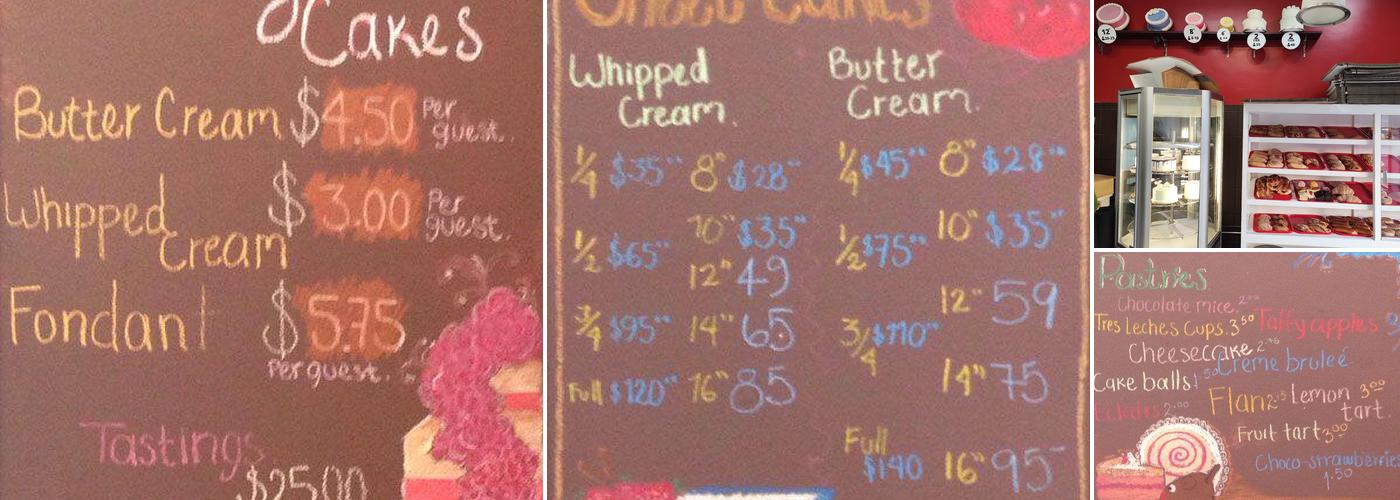 Cakes
Butter Cream $4.50 Per guest.
Whipped Cream $3.00 Per guest.
Fondant $5.75 per guest.
Tastings
$25.00
Choco Cakes
Whipped Cream.
1/4 $35 8" $28
10" $35
1/2 $65 12" 49
3/4 $95 14" 65
Full $120 16" 85
Butter Cream.
1/4 $45 8" $28
1/2 $75 10" $35
12" 59
3/4 $110 14" 75
Full $140 16" 95
12
8
6
2
2
Pastries
Chocolate mice.
Tres Leches Cups. 3.50 Taffy apples
Cheesecake
Cake balls 1.50 Creme bruleé
Eclairs 2.00 Flan Lemon tart 3.00
Fruit tart 3.00
Choco-strawberries
1.50